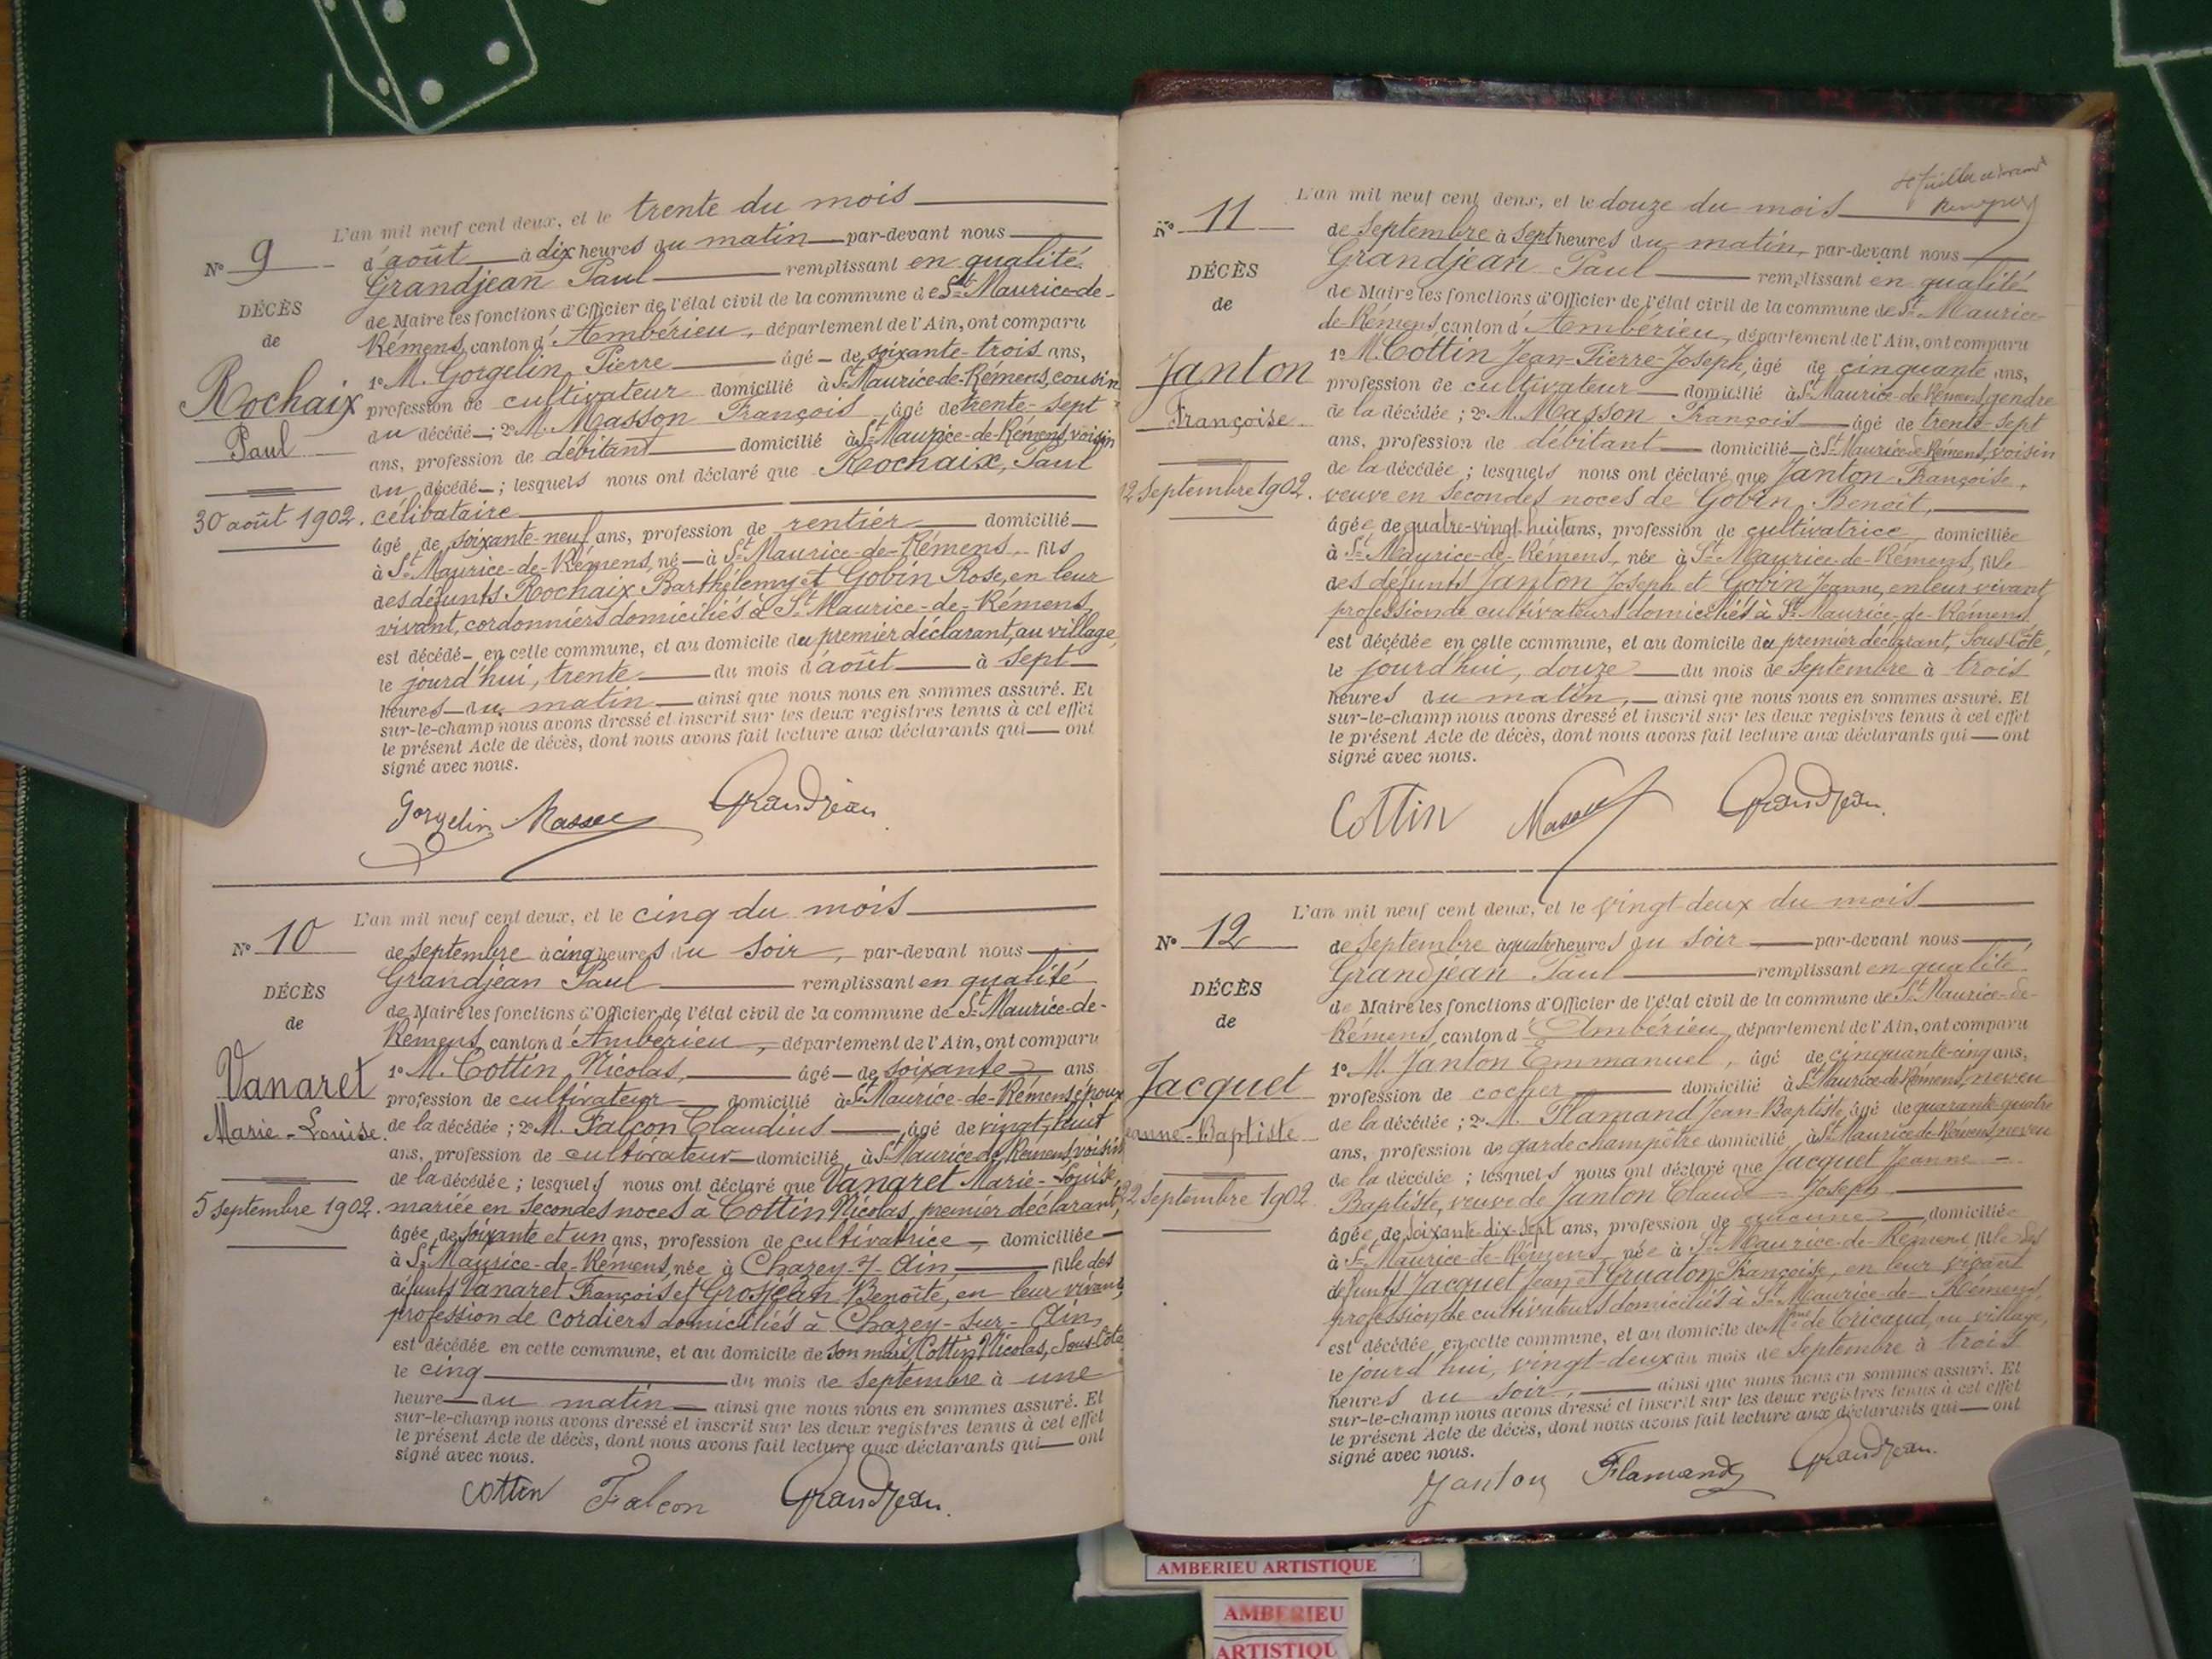 L'an mil neuf cent deux, et le trente du mois
No 9
d'août à dix heures du matin par-devant nous
Grandjean Paul remplissant en qualité
DÉCÈS
de Maire les fonctions d'Officier de l'état civil de la commune de St Maurice-de-
de
Rémens, canton d'Ambérieu, département de l'Ain, ont comparu
1o M. Gorgelin Pierre âgé de soixante-trois ans,
Rochaix
profession de cultivateur domicilié à St Maurice-de-Rémens, cousin
Paul
du décédé ; 2o M. Masson François âgé de trente-sept
ans, profession de débitant domicilié à St Maurice-de-Rémens, voisin
du décédé ; lesquels nous ont déclaré que Rochaix, Paul
30 août 1902.
célibataire
âgé de soixante-neuf ans, profession de rentier domicilié
à St Maurice-de-Rémens, né à St Maurice-de-Rémens, fils
des défunts Rochaix Barthélemy et Gobin Rose, en leur
vivant, cordonniers domiciliés à St Maurice-de-Rémens,
est décédé en cette commune, et au domicile du premier déclarant, au village,
le jourd'hui, trente du mois d'août à sept
heures du matin ainsi que nous nous en sommes assuré. Et
sur-le-champ nous avons dressé et inscrit sur les deux registres tenus à cet effet
le présent Acte de décès, dont nous avons fait lecture aux déclarants qui ont
signé avec nous.
Gorgelin Masson Grandjean
L'an mil neuf cent deux, et le cinq du mois
No 10
de septembre à cinq heures du soir, par-devant nous
Grandjean Paul remplissant en qualité
DÉCÈS
de Maire les fonctions d'Officier de l'état civil de la commune de St Maurice-de-
de
Rémens, canton d'Ambérieu, département de l'Ain, ont comparu
1o M. Cottin Nicolas, âgé de soixante ans
Vanaret
profession de cultivateur domicilié à St Maurice-de-Rémens, époux
Marie-Louise.
de la décédée ; 2o M. Falcon Claudius âgé de vingt-huit
ans, profession de cultivateur domicilié à St Maurice de Rémens, voisin
de la décédée ; lesquels nous ont déclaré que Vanaret Marie-Louise,
5 septembre 1902.
mariée en secondes noces à Cottin Nicolas, premier déclarant,
âgée de soixante et un ans, profession de cultivatrice, domiciliée
à St Maurice-de-Rémens, née à Chazey-s/-Ain, fille des
défunts Vanaret François et Grosjean Benoîte, en leur vivant,
profession de cordiers domiciliés à Chazey-sur-Ain,
est décédée en cette commune, et au domicile de son mari, Cottin Nicolas, Sous-Côte
le cinq du mois de septembre à une
heure du matin ainsi que nous nous en sommes assuré. Et
sur-le-champ nous avons dressé et inscrit sur les deux registres tenus à cet effet
le présent Acte de décès, dont nous avons fait lecture aux déclarants qui ont
signé avec nous.
Cottin Falcon Grandjean.
L'an mil neuf cent deux, et le douze du mois
No 11
de septembre à sept heures du matin, par-devant nous
Grandjean Paul remplissant en qualité
DÉCÈS
de Maire les fonctions d'Officier de l'état civil de la commune de St Maurice-
de
de-Rémens, canton d'Ambérieu, département de l'Ain, ont comparu
1o M. Cottin Jean-Pierre-Joseph, âgé de cinquante ans,
Janton
profession de cultivateur domicilié à St Maurice-de-Rémens, gendre
Françoise
de la décédée ; 2o M. Masson François âgé de trente-sept
ans, profession de débitant domicilié à St Maurice-de-Rémens, voisin
de la décédée ; lesquels nous ont déclaré que Janton Françoise,
12 septembre 1902.
veuve en secondes noces de Gobin Benoît,
âgée de quatre-vingt-huit ans, profession de cultivatrice, domiciliée
à St Maurice-de-Rémens, née à St Maurice-de-Rémens, fille
des défunts Janton Joseph et Gobin Jeanne, en leur vivant
profession de cultivateurs domiciliés à St Maurice-de-Rémens,
est décédée en cette commune, et au domicile du premier déclarant, Sous-Côte,
le jourd'hui, douze du mois de septembre à trois
heures du matin, ainsi que nous nous en sommes assuré. Et
sur-le-champ nous avons dressé et inscrit sur les deux registres tenus à cet effet
le présent Acte de décès, dont nous avons fait lecture aux déclarants qui ont
signé avec nous.
Cottin Masson Grandjean.
L'an mil neuf cent deux, et le vingt-deux du mois
No 12
de septembre à quatre heures du soir par-devant nous
Grandjean Paul remplissant en qualité
DÉCÈS
de Maire les fonctions d'Officier de l'état civil de la commune de St Maurice-de-
de
Rémens, canton d'Ambérieu, département de l'Ain, ont comparu
1o M. Janton Emmanuel, âgé de cinquante-cinq ans,
Jacquet
profession de cocher domicilié à St Maurice-de-Rémens, neveu
eanne-Baptiste
de la décédée ; 2o M. Flamand Jean-Baptiste, âgé de quarante-quatre
ans, profession de garde champêtre domicilié à St Maurice-de-Rémens neveu
de la décédée ; lesquels nous ont déclaré que Jacquet Jeanne-
22 septembre 1902
Baptiste, veuve de Janton Claude-Joseph
âgée de soixante-dix-sept ans, profession de aucune domiciliée
à St Maurice-de-Rémens née à St Maurice-de-Rémens fille des
défunts Jacquet Jean et Gruaton Françoise, en leur vivant
profession de cultivateurs domiciliés à St Maurice-de-Rémens,
est décédée en cette commune, et au domicile de Mme de Tricaud, au village,
le jourd'hui, vingt-deux du mois de septembre à trois
heures du soir, ainsi que nous nous en sommes assuré. Et
sur-le-champ nous avons dressé et inscrit sur les deux registres tenus à cet effet
le présent Acte de décès, dont nous avons fait lecture aux déclarants qui ont
signé avec nous.
Janton Flamand Grandjean.
AMBERIEU ARTISTIQUE
AMBERIEU
ARTISTIQU